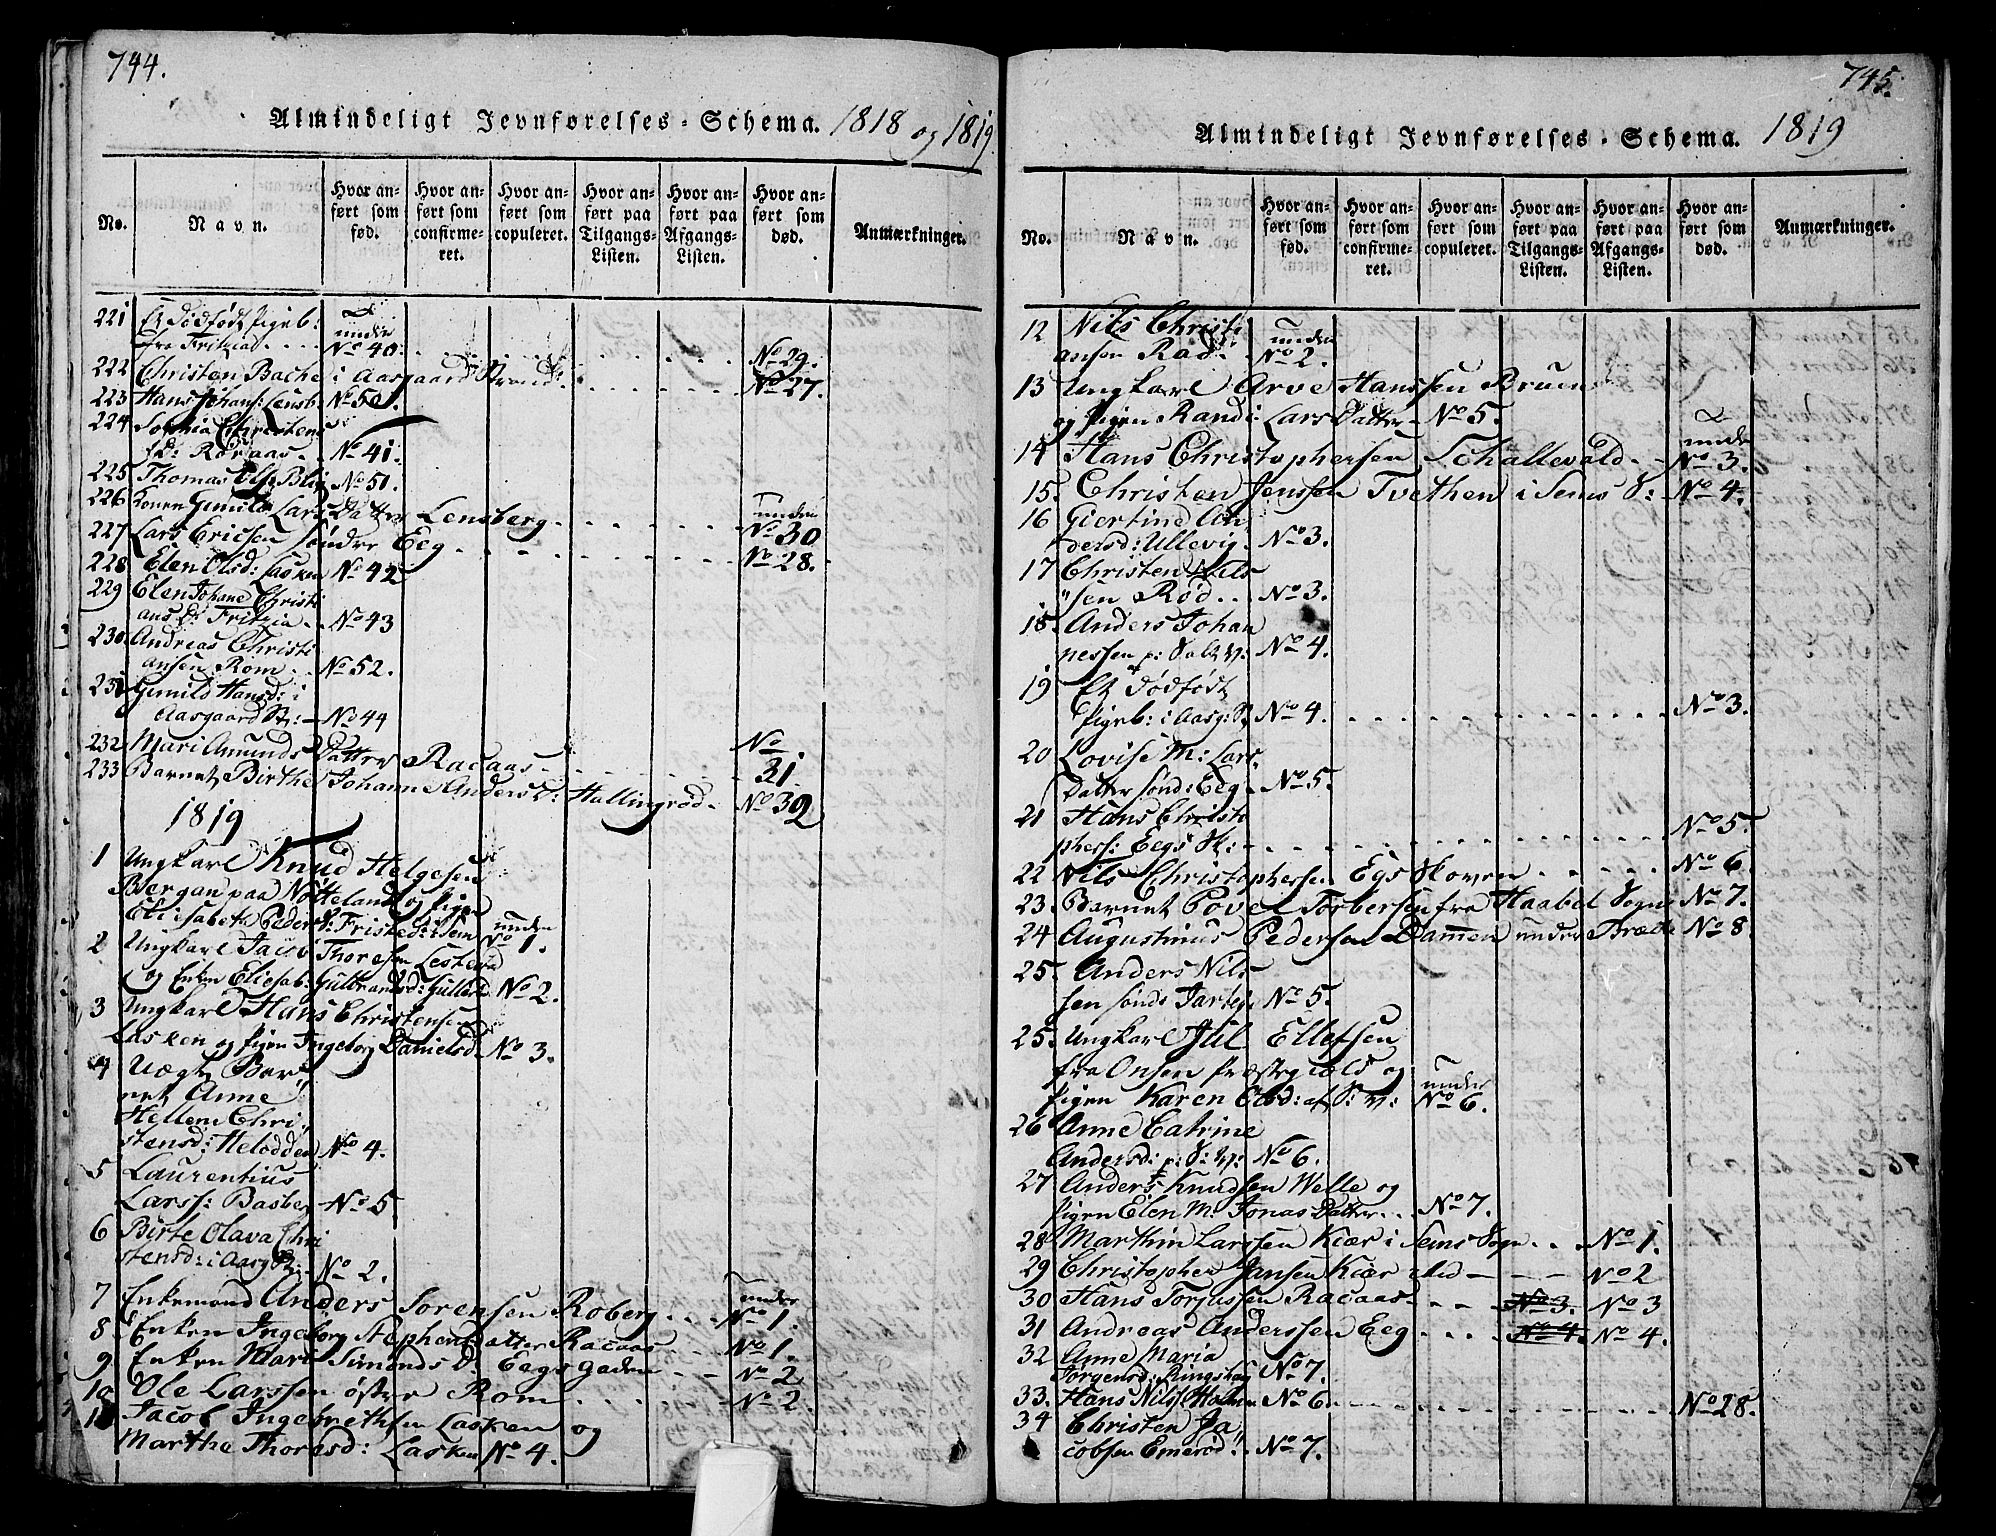 744.
Almindeligt Jevnførelses-Schema. 1818 og 1819.
No.
Navn.
Hvor anført som fød.
Hvor anført som confirmeret.
Hvor anført som copuleret.
Hvor anført paa Tilgangs-Listen.
Hvor anført paa Afgangs-Listen.
Hvor anført som død.
Anmærkninger.
221 Et dödfödt Pigeb: under
fra Fritzia No 40. No 29.
222 Christen Bache i Aasgaard Strand No 27.
223 Hans Johans: Lensb: No 50.
224 Sophia Christens
D: Roraas No 41.
225 Thomas No 51.
226 Konen Gunild Lars Datter Lensberg under No 30
227 Lars Ericsen Søndre Eeg No 28.
228 Elen Olsd: Lasken No 42
229 Elen Johane Christi
ans D: Fritzia No 43
230 Andreas Christi
ansen Rom No 52.
231 Gunild Hansd: i
Aasgaard St: No 44
232 Mari Amunds Datter Racaas No 31.
233 Barnet Birthe Johanne Anders D: Hallingrød No 32
1819
1 Ungkarl Knud Helgesen
Bergan paa Nötteland og Pigen
Eliesabeth Peders D: Fristed i Sem under No 1.
2 Ungkarl Jacob Thoresen
og Enken Eliesab: No 2.
3 Ungkarl Hans Christensen
Lasken og Pigen Ingeborg Danielsd No 3.
4 Uægt Bar
net Anne
Hellene Chri
stensd: Helodden No 4.
5 Laurentius
Larss: Basber No 5
6 Birte Olava Chri
stensd: i Aasg St: No 2.
7 Enkemand Anders Sorensen Roberg under No 1.
8 Enken Ingeborg Stephensdatter Racaas No 1.
9 Enken Mari Simonds D: Eegs gaden No 2
10 Ole Larssen øster Rom No 2.
11 Jacob Ingebrethsen Lasken og
Marthe Thoresd: Lasken No 4.
745.
Almindeligt Jevnførelses-Schema. 1819
No.
Navn.
Hvor anført som fød.
Hvor anført som confirmeret.
Hvor anført som copuleret.
Hvor anført paa Tilgangs-Listen.
Hvor anført paa Afgangs-Listen.
Hvor anført som død.
Anmærkninger.
12 Nils Christi under
ansen Rad No 2.
13 Ungkarl Arve Hanssen Bruun
og Pigen Randi Lars Datter No 5.
14 Hans Christophersen Schallevald under No 3.
15. Christen Jenssen Tvethen i Sems S: No 4.
16 Giertine An
dersd: Ullevig No 3.
17 Christen Nils
sen Rød No 3.
18. Anders Johan
nessen No 4.
19 Et dødfødt
Pigeb: i Aasg: St No 4. No 3.
20 Lovise M: Lars
Datter sønd: Eeg No 5.
21 Hans Christo
phers: Eegs Sk: No 5.
22 Nils Christophersen Egs Skoven No 6.
23. Barnet Povel Torbersen fra Haabel Sogn No 7.
24 Augustinus Pedersen Damen under Bræke No 8
25. Anders Nils
sen sønd: Jareg No 5.
25. Ungkarl Jul Ellefsen
fra Onsøn Præstegiæld og under
Pigen Karen Olsd: af S: V: No 6.
26 Anne Catrine
Andersd: p: S: V: No 6.
27 Anders Knudsen Welle og
Pigen Elen M: Jonas Datter No 7.
28 Marthin Larssen Kiær i Sems Sogn No 1.
29 Christopher Jansen Kiær ibid No 2
30 Hans Torjussen Racaas No 3. No 3
31 Andreas Anderssen Eeg No 4. No 4.
32 Anne Maria
Jorgensd: Ringshaug No 7.
33. Hans Nilss: Holmen No 6 No 28.
34 Christen Ja
cobsen Emerød No 7.